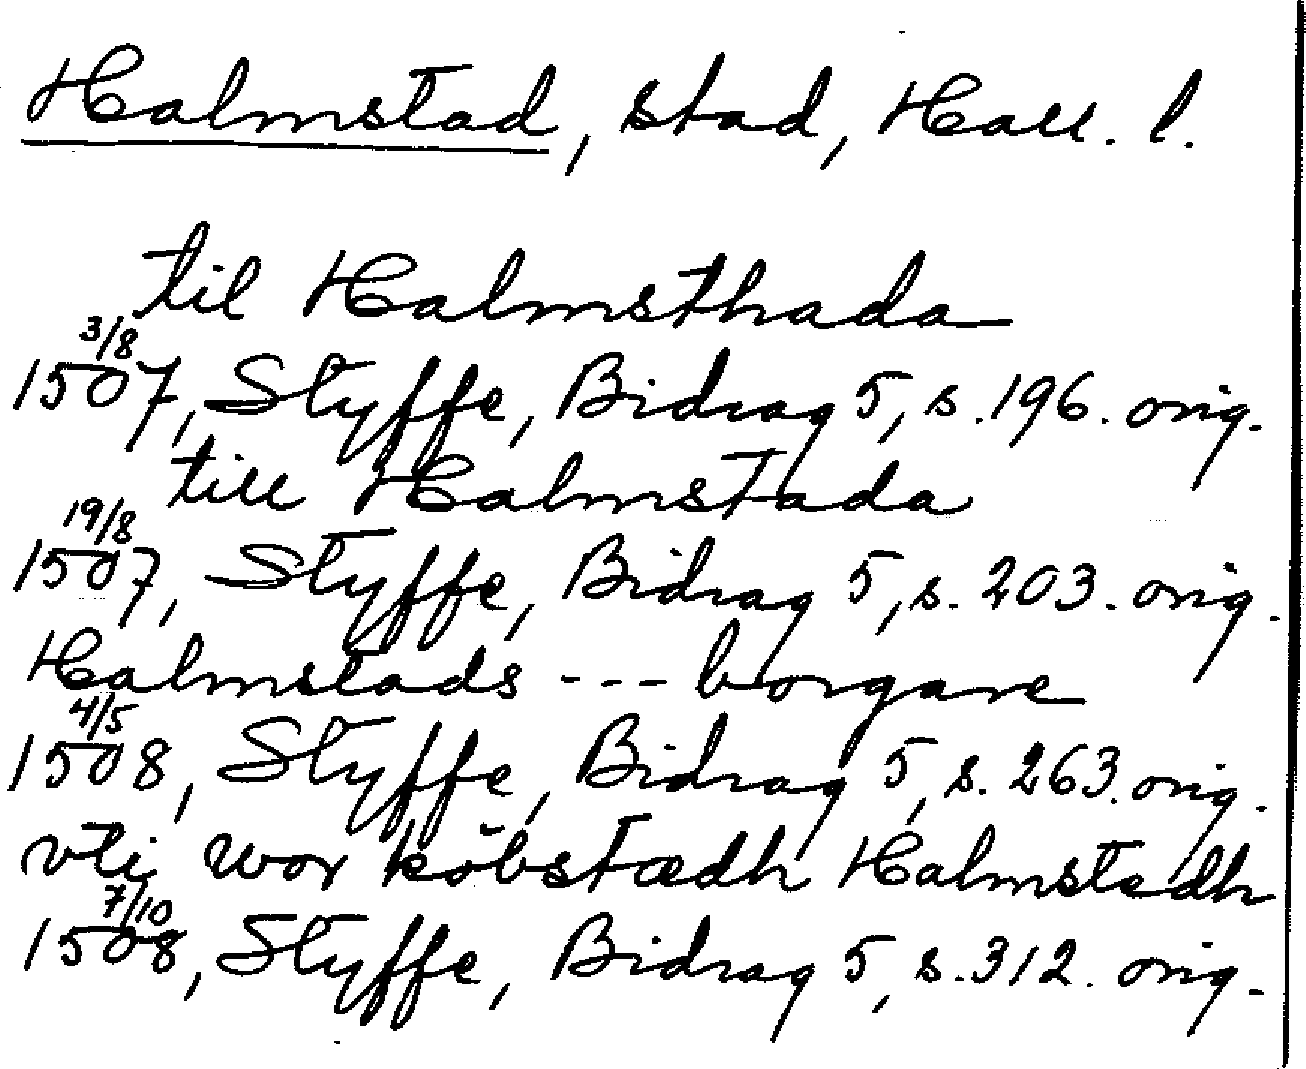 Halmstad, stad, Hall. l.
til Halmsthada
3/8
1507, Styffe, Bidrag 5, s. 196. orig.
till Halmstada
19/8
1507, Styffe, Bidrag 5, s. 203. orig.
Halmstads --- borgare
4/5
1508, Styffe, Bidrag 5, s. 263. orig.
vti wor köbstædh Halmstedh
7/10
1508, Styffe, Bidrag 5, s. 312. orig.